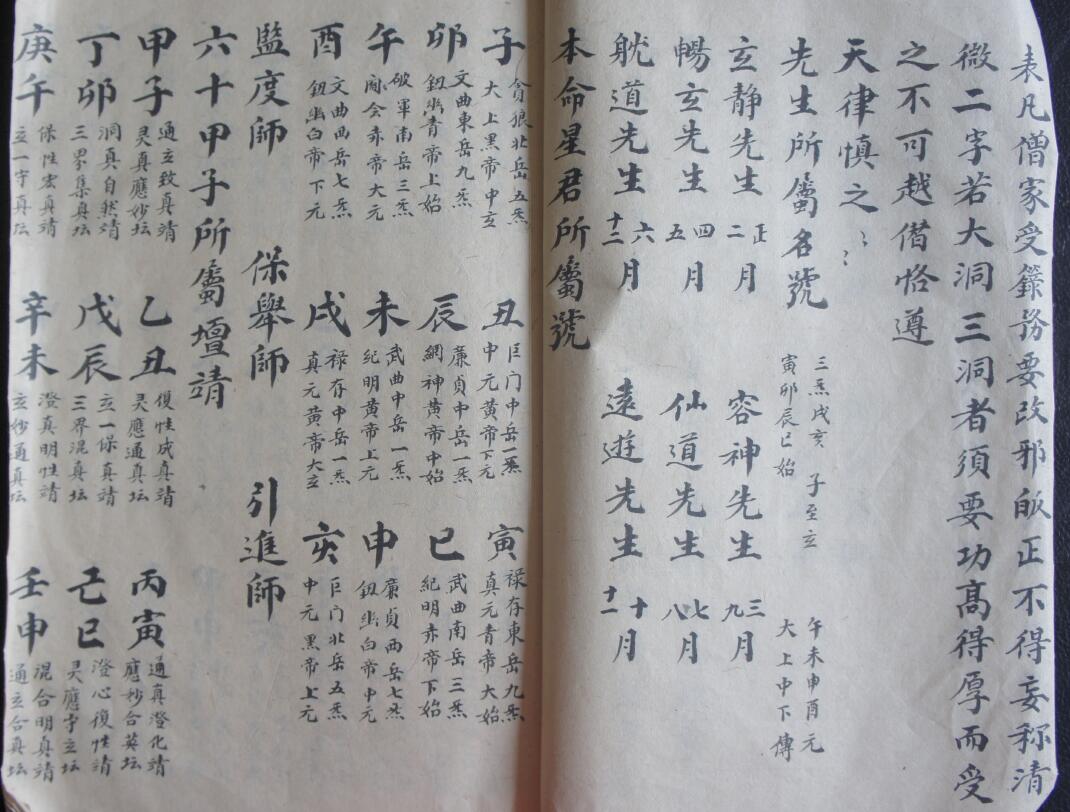 表凡僧家受籙務要改邪皈正不得妄称清
微二字若大洞三洞者須要功高得厚而受
之不可越僭恪遵
天律慎之〻〻
先生所屬名號
三炁戌亥 子至玄
寅卯辰巳始
午未申酉元
大上中下傳
玄静先生 正二月 容神先生 三九月
暢玄先生 四五月 仙道先生 七八月
躭道先生 六十二月 遠遊先生 十十一月
本命星君所屬號
子 貪狼北岳五炁 大上黑帝中玄 丑 巨门中岳一炁 中元黄帝下元 寅 禄存東岳九炁 真元青帝大始
卯 文曲東岳九炁 鈕幽青帝上始 辰 廉貞中岳一炁 網神黄帝中始 巳 武曲南岳三炁 紀明赤帝下始
午 破軍南岳三炁 会赤帝大元 未 武曲中岳一炁 紀明黄帝上元 申 廉貞西岳七炁 鈕幽白帝中元
酉 文曲西岳七炁 鈕幽白帝下元 戌 禄存中岳一炁 真元黄帝大玄 亥 巨门北岳五炁 中元黑帝上元
監度師 保舉師 引進師
六十甲子所屬壇靖
甲子 通玄致真靖 灵真應妙坛 乙丑 復性成真靖 灵應通真坛 丙寅 通真澄化靖 應妙合英坛
丁卯 洞真自然靖 三界集真坛 戊辰 玄一保真靖 三界混真坛 己巳 澄心復性靖 灵應守玄坛
庚午 保性宏真靖 玄一守真坛 辛未 澄真明性靖 玄妙通真坛 壬申 混合明真靖 通玄合真坛